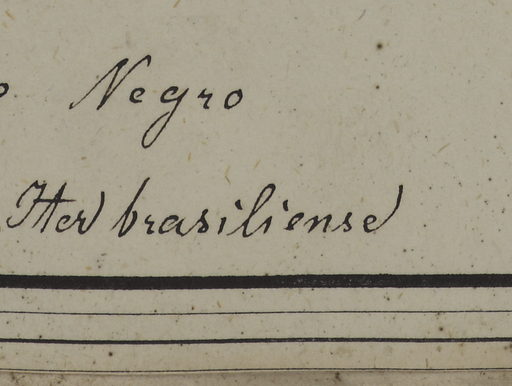 o Negro
Iter brasiliense